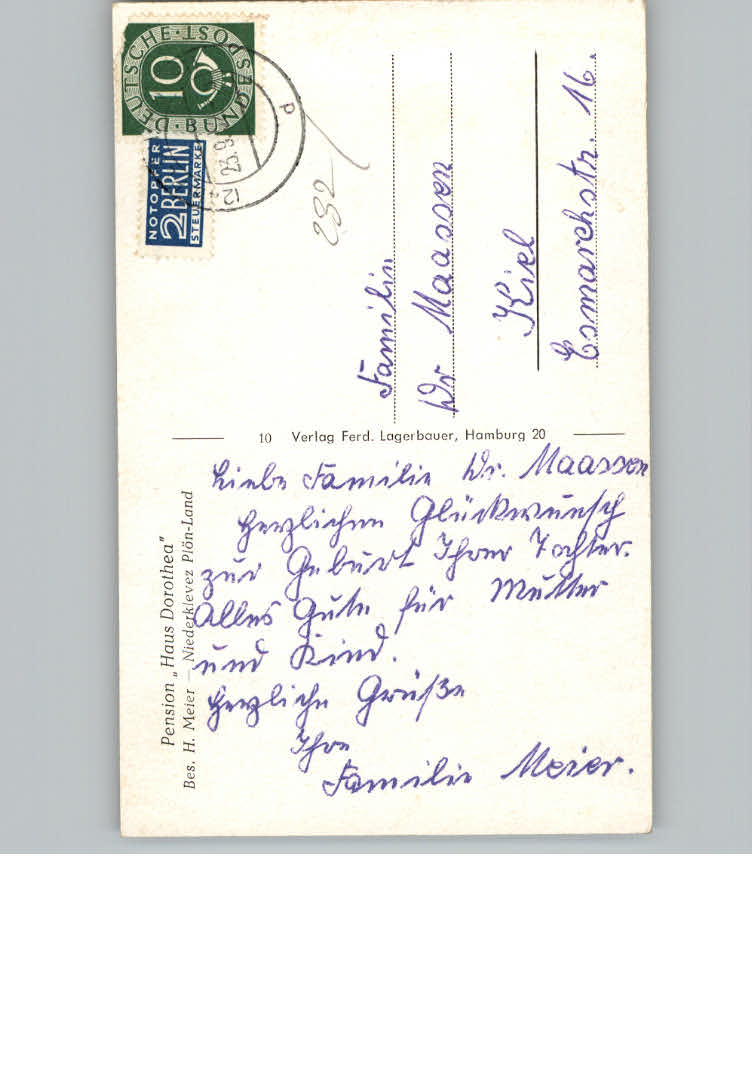 DEUTSCHE · BUNDESPOST
10
NOTOPFER
2 BERLIN
STEUERMARKE
12
23.9
p
282
Familie
Dr Maassen
Kiel
Esmarchstr. 16.
10 Verlag Ferd. Lagerbauer, Hamburg 20
Pension „Haus Dorothea"
Bes. H. Meier – Niederklevez Plön-Land
Liebe Familie Dr. Maassen
Herzlichen Glückwunsch
zur Geburt Ihrer Tochter.
Alles Gute für Mutter
und Kind.
Herzliche Grüße
Ihre
Familie Meier.